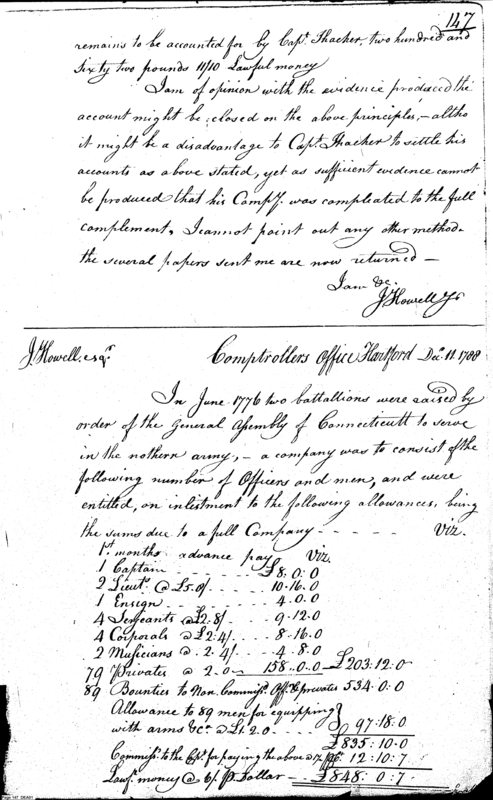 147
remains to be accounted for by Capt. Thacher, two hundred and
Sixty two pounds 11/10 Lawful money
I am of opinion with the evidence produced the
account might be closed on the above principles, – altho
it might be a disadvantage to Capt. Thacher to settle his
accounts as above stated, yet as sufficient evidence cannot
be produced that his Compy. was compleated to the full
complement, I cannot point out any other method –
the several papers sent me are now returned –
I am &c.
J Howell Jr
J. Howell. esqr. Comptrollers Office Hartford Decr. 11. 1788
In June 1776 two battallions were raised by
order of the General Assembly of Connecticutt to serve
in the nothern army, – a company was to consist of the
following number of Officers and men, and were
entitled, on inlistment to the following allowances, being
the sums due to a full Company - - - - - Viz.
1st. months advance pay Viz.
1 Captain - - - - - £8. 0. 0
2 Lieuts. @ £5. 8/ - - - 10. 16. 0
1 Ensign - - - - - 4. 0. 0
4 Sergeants @ £2. 8/ - - - 9. 12. 0
4 Corporals @ £2. 4/ - - - 8. 16. 0
2 Musicians @ 2. 4/ - - - 4. 8. 0
79 Privates @ 2. 0 – 158. 0. 0 – £203. 12. 0
89 Bounties to Non. Commissd. Off. & privates 534. 0. 0
Allowance to 89 men for equipping
with arms &c. @ £1. 2. 0 - - - 97. 18. 0
£835. 10. 0
Commiss. to the Capt. for paying the above @ 12. 10. 7
Lawf. money @ 6/ pr. Dollar – £848. 0. 7